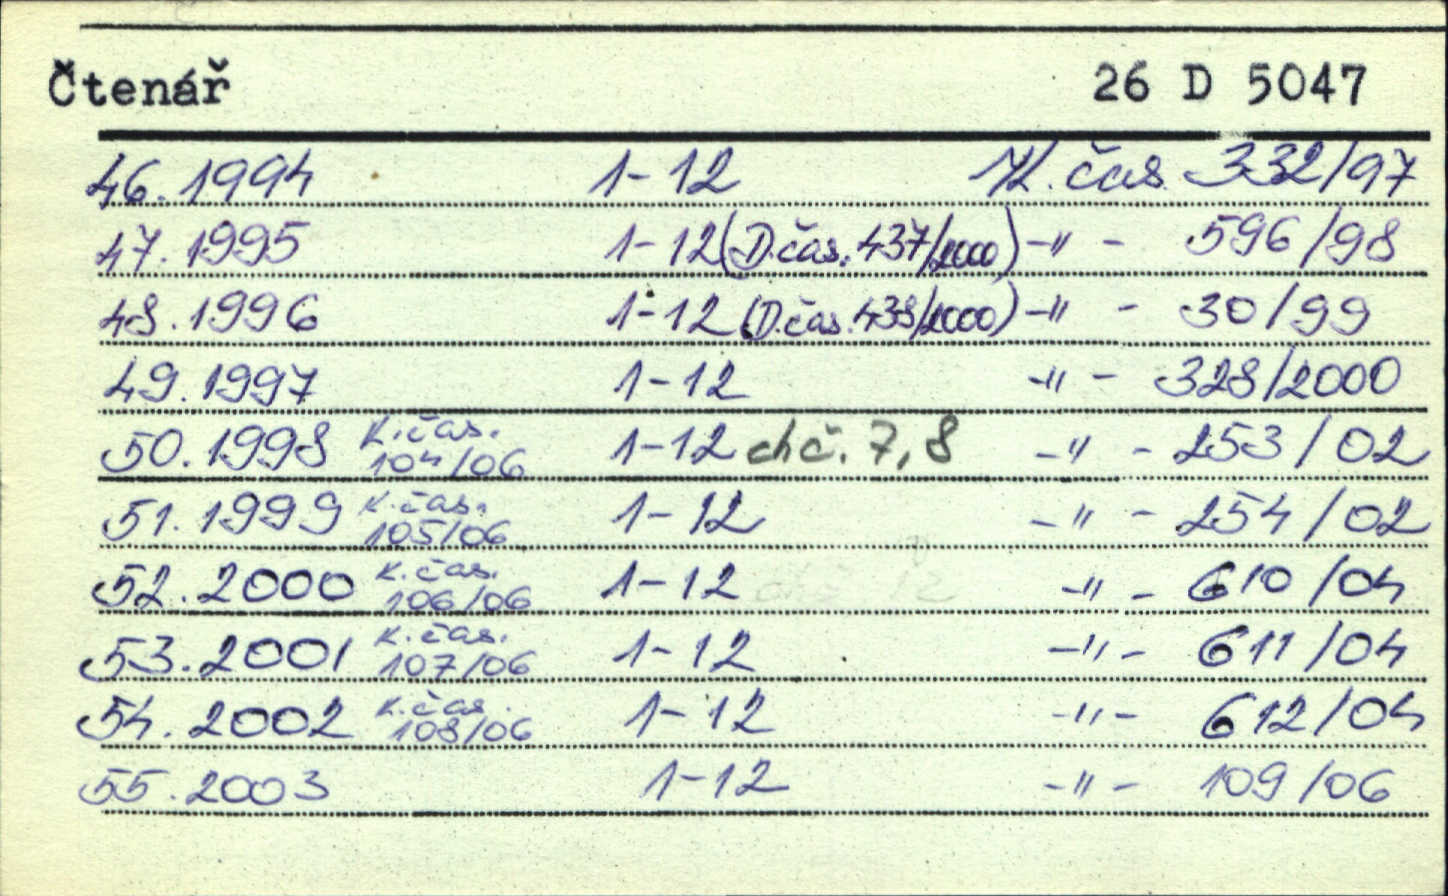 Čtenář 26 D 5047
46.1994 1-12 K. čas. 332/97
47.1995 1-12 (D.čas. 437/2000) -"- 596/98
48.1996 1-12 (D.čas. 438/2000) -"- 30/99
49.1997 1-12 -"- 328/2000
50.1998 K.čas. 104/06 1-12 chč. 7,8 -"- 253/02
51.1999 K.čas. 105/06 1-12 -"- 254/02
52.2000 K.čas. 106/06 1-12 -"- 610/04
53.2001 K.čas. 107/06 1-12 -"- 611/04
54.2002 K.čas. 108/06 1-12 -"- 612/04
55.2003 1-12 -"- 109/06